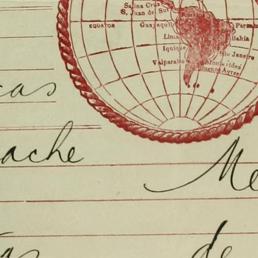 Salina Cruz
S. Juan de Sur
EQUATOR Guayaquil Para
Lima Bahia
Iquique Rio Janeiro
Valparaiso
Buenos Ayres
cas
ache Me
as de